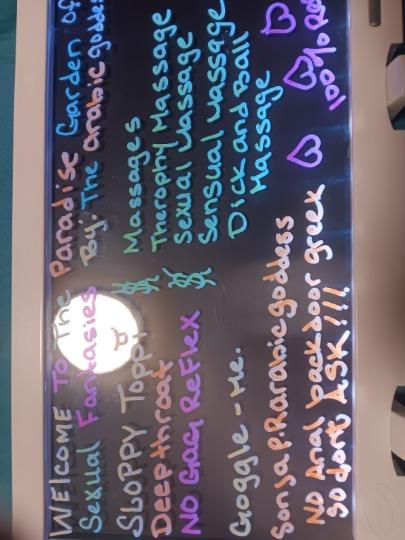 WELCOME TO The Paradise Garden of
Sexual Fantasies By: The arabic goddess
SLOPPY Toppy $$ Massages
Deepthroat Therophy Massage
NO GAG ReFlEX $$ Sexual Massage
Sensual Massage
Google-me. Dick and Ball
Massage
Sonja P. Rarabic goddess
NO Anal backdoor greek
So dont ASK!!!
100% Real